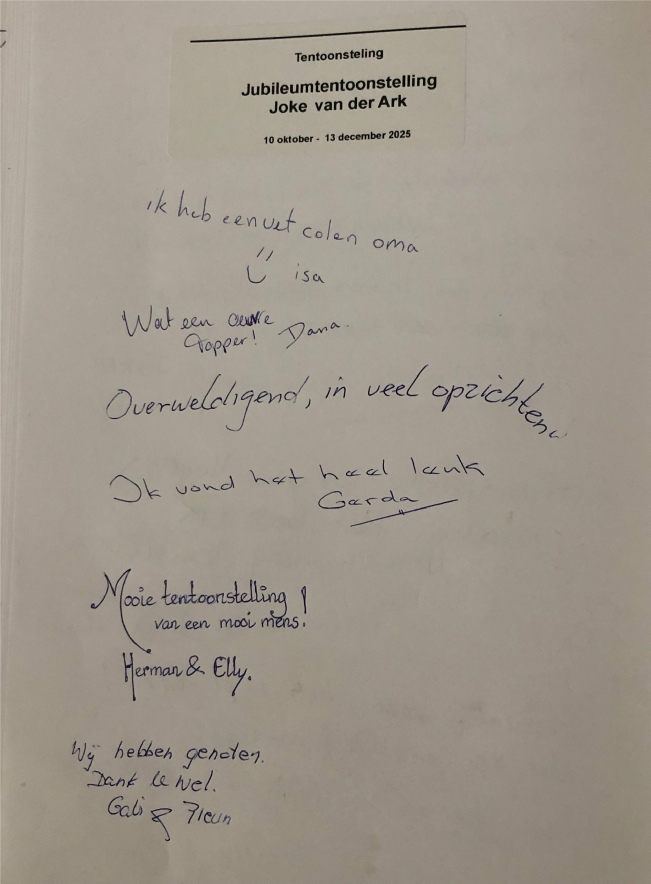 Tentoonsteling
Jubileumtentoonstelling
Joke van der Ark
10 oktober - 13 december 2025
ik heb een vet colen oma
isa
Wat een oeuvre
Topper! Dana.
Overweldigend, in veel opzichten
Ik vond het heel leuk
Gerda
Mooie tentoonstelling!
van een mooi mens!
Herman & Elly.
Wij hebben genoten.
Dank le wel.
Gabi &